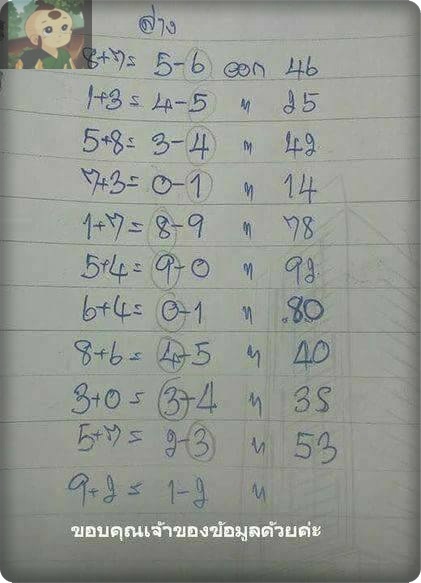 ล่าง
8+7= 5-6 ออก 46
1+3= 4-5 " 25
5+8= 3-4 " 42
7+3= 0-1 " 14
1+7= 8-9 " 78
5+4= 9-0 " 92
6+4= 0-1 " 80
8+6= 4-5 " 40
3+0= 3-4 " 35
5+7= 2-3 " 53
9+2= 1-2 "
ขอบคุณเจ้าของข้อมูลด้วยค่ะ